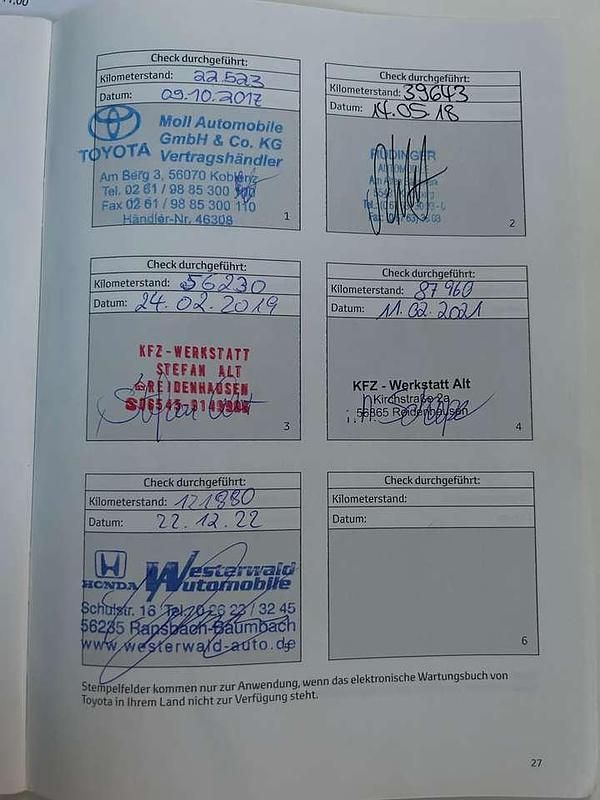 Check durchgeführt:
Kilometerstand: 22.523
Datum: 09.10.2017
TOYOTA
Moll Automobile
GmbH & Co. KG
Vertragshändler
Am Berg 3, 56070 Koblenz
Tel. 02 61 / 98 85 300
Fax 02 61 / 98 85 300 110
Händler-Nr. 46308
1
Check durchgeführt:
Kilometerstand: 39643
Datum: 14.05.18
2
Check durchgeführt:
Kilometerstand: 56230
Datum: 24.02.2019
KFZ-WERKSTATT
STEFAN ALT
REIDENHAUSEN
3
Check durchgeführt:
Kilometerstand: 87960
Datum: 11.02.2021
KFZ - Werkstatt Alt
Kirchstraße 2a
56865 Reidenhausen
4
Check durchgeführt:
Kilometerstand: 121880
Datum: 22.12.22
HONDA
Westerwald
Automobile
Schulstr. 16 Tel. 0 26 23 / 32 45
56235 Ransbach-Baumbach
www.westerwald-auto.de
Check durchgeführt:
Kilometerstand:
Datum:
6
Stempelfelder kommen nur zur Anwendung, wenn das elektronische Wartungsbuch von
Toyota in Ihrem Land nicht zur Verfügung steht.
27